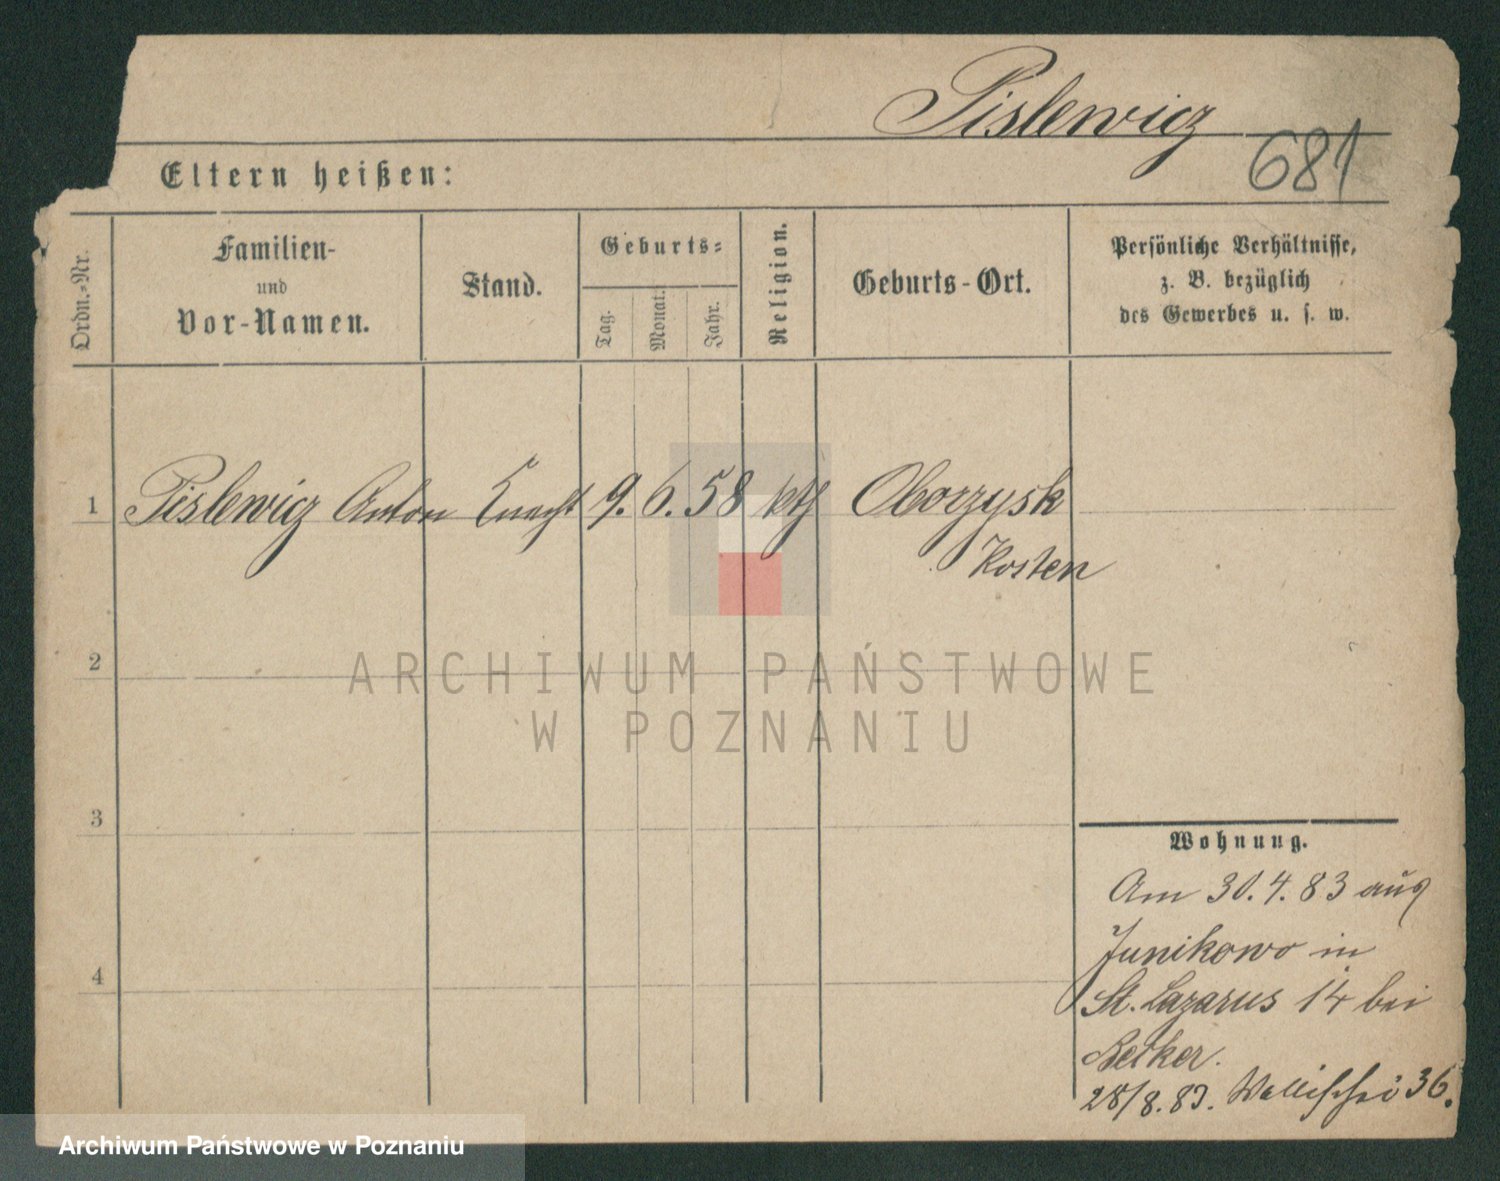 Pislewicz
681
Eltern heißen:
Ordn.-Nr.
Familien-
und
Vor-Namen.
Stand.
Geburts-
Tag.
Monat.
Jahr.
Religion.
Geburts-Ort.
Persönliche Verhältnisse,
z. B. bezüglich
des Gewerbes u. s. w.
1 Pislewicz Anton Knecht 9. 6. 58 kth Oborzysk
Kosten
2
ARCHIWUM PAŃSTWOWE
W POZNANIU
3
Wohnung.
Am 30.4.83 aus
Junikowo in
4
St. Lazarus 14 bei
Becker.
28/8.83. Wallischei 36.
Archiwum Państwowe w Poznaniu